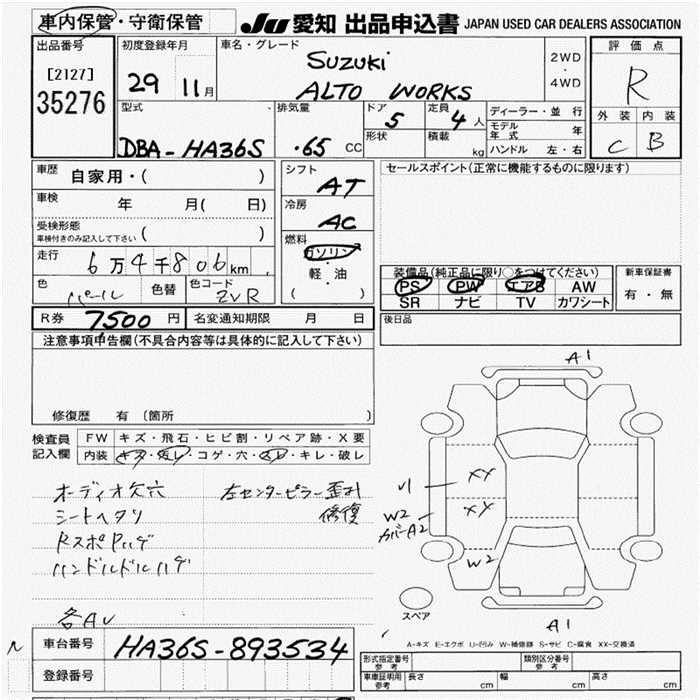 車内保管・守衛保管
JU 愛知 出品申込書 JAPAN USED CAR DEALERS ASSOCIATION
出品番号
[2127]
35276
初度登録年月
29 11月
車名・グレード
SUZUKI
ALTO WORKS
2WD
・
4WD
評価点
R
外装 内装
C B
型式
DBA-HA36S
排気量
.65 CC
ドア
5
形状
定員
4人
積載
kg
ディーラー・並行
モデル年式 年
ハンドル 左・右
車歴 自家用・( )
車検 年 月( 日)
受検形態
車検付きのみ記入して下さい ( )
走行 6万4千806km
色 パール 色替 色コード ZVR
シフト
AT
冷房
AC
燃料
ガソリン
・
軽・油
( )
セールスポイント(正常に機能するものに限ります)
装備品(純正品に限り○をつけてください)
PS PW エアB AW
SR ナビ TV カワシート
新車保証書
有・無
R券 7500円 名変通知期限 月 日
後日品
注意事項申告欄(不具合内容等は具体的に記入して下さい)
修復歴 有 〔箇所 〕
検査員記入欄
FW キズ・飛石・ヒビ割・リペア跡・X要
内装 キズ・汚レ・コゲ・穴・スレ・キレ・破レ
オーディオ欠穴
シートヘタリ
左センターピラー歪ミ
修復
ハンドルドルハゲ
A1
XX
XY
W2
W2
カバーA2
A1
スペア
A-キズ E-エクボ U-凹み W-補修跡 S-サビ C-腐食 XX-交換済
車台番号 HA36S-893534
登録番号
型式指定番号
参考
類別区分番号
参考
車庫証明用
参考
長さ cm 幅 cm 高さ cm